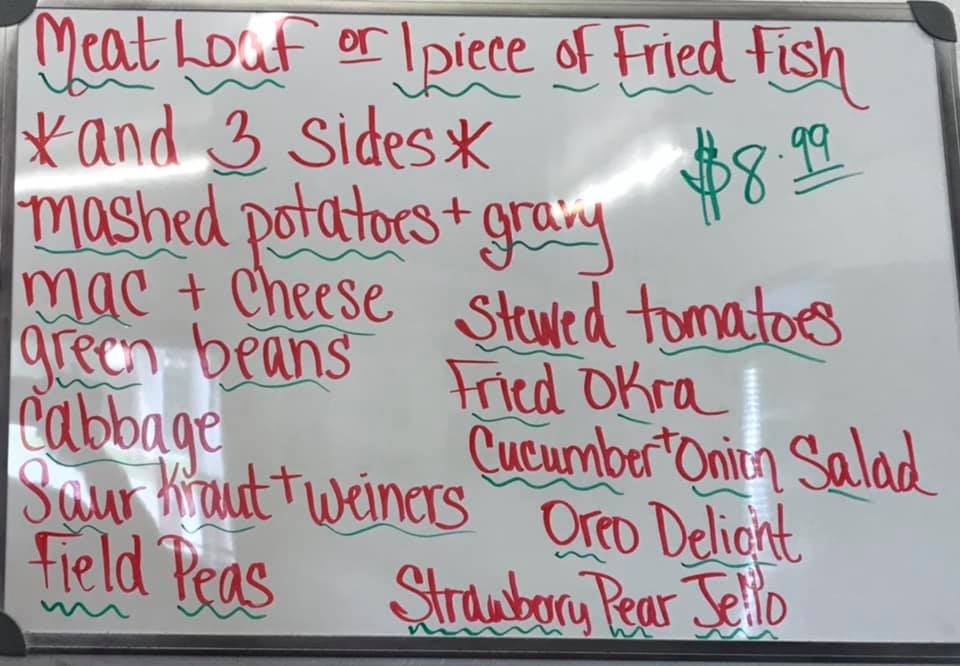 Meat Loaf or 1 piece of Fried Fish
*and 3 sides*
$8.99
mashed potatoes + gravy
mac + cheese
green beans
Cabbage
Saur Kraut + weiners
Field Peas
Stewed tomatoes
Fried Okra
Cucumber + Onion Salad
Oreo Delight
Strawberry Pear Jello